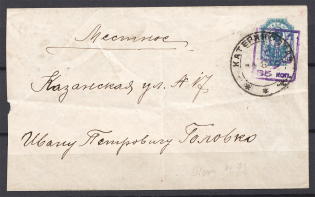 Местное
КАТЕРИН
35 коп.
Казанская ул. № 17
Ивану Петровичу Головко